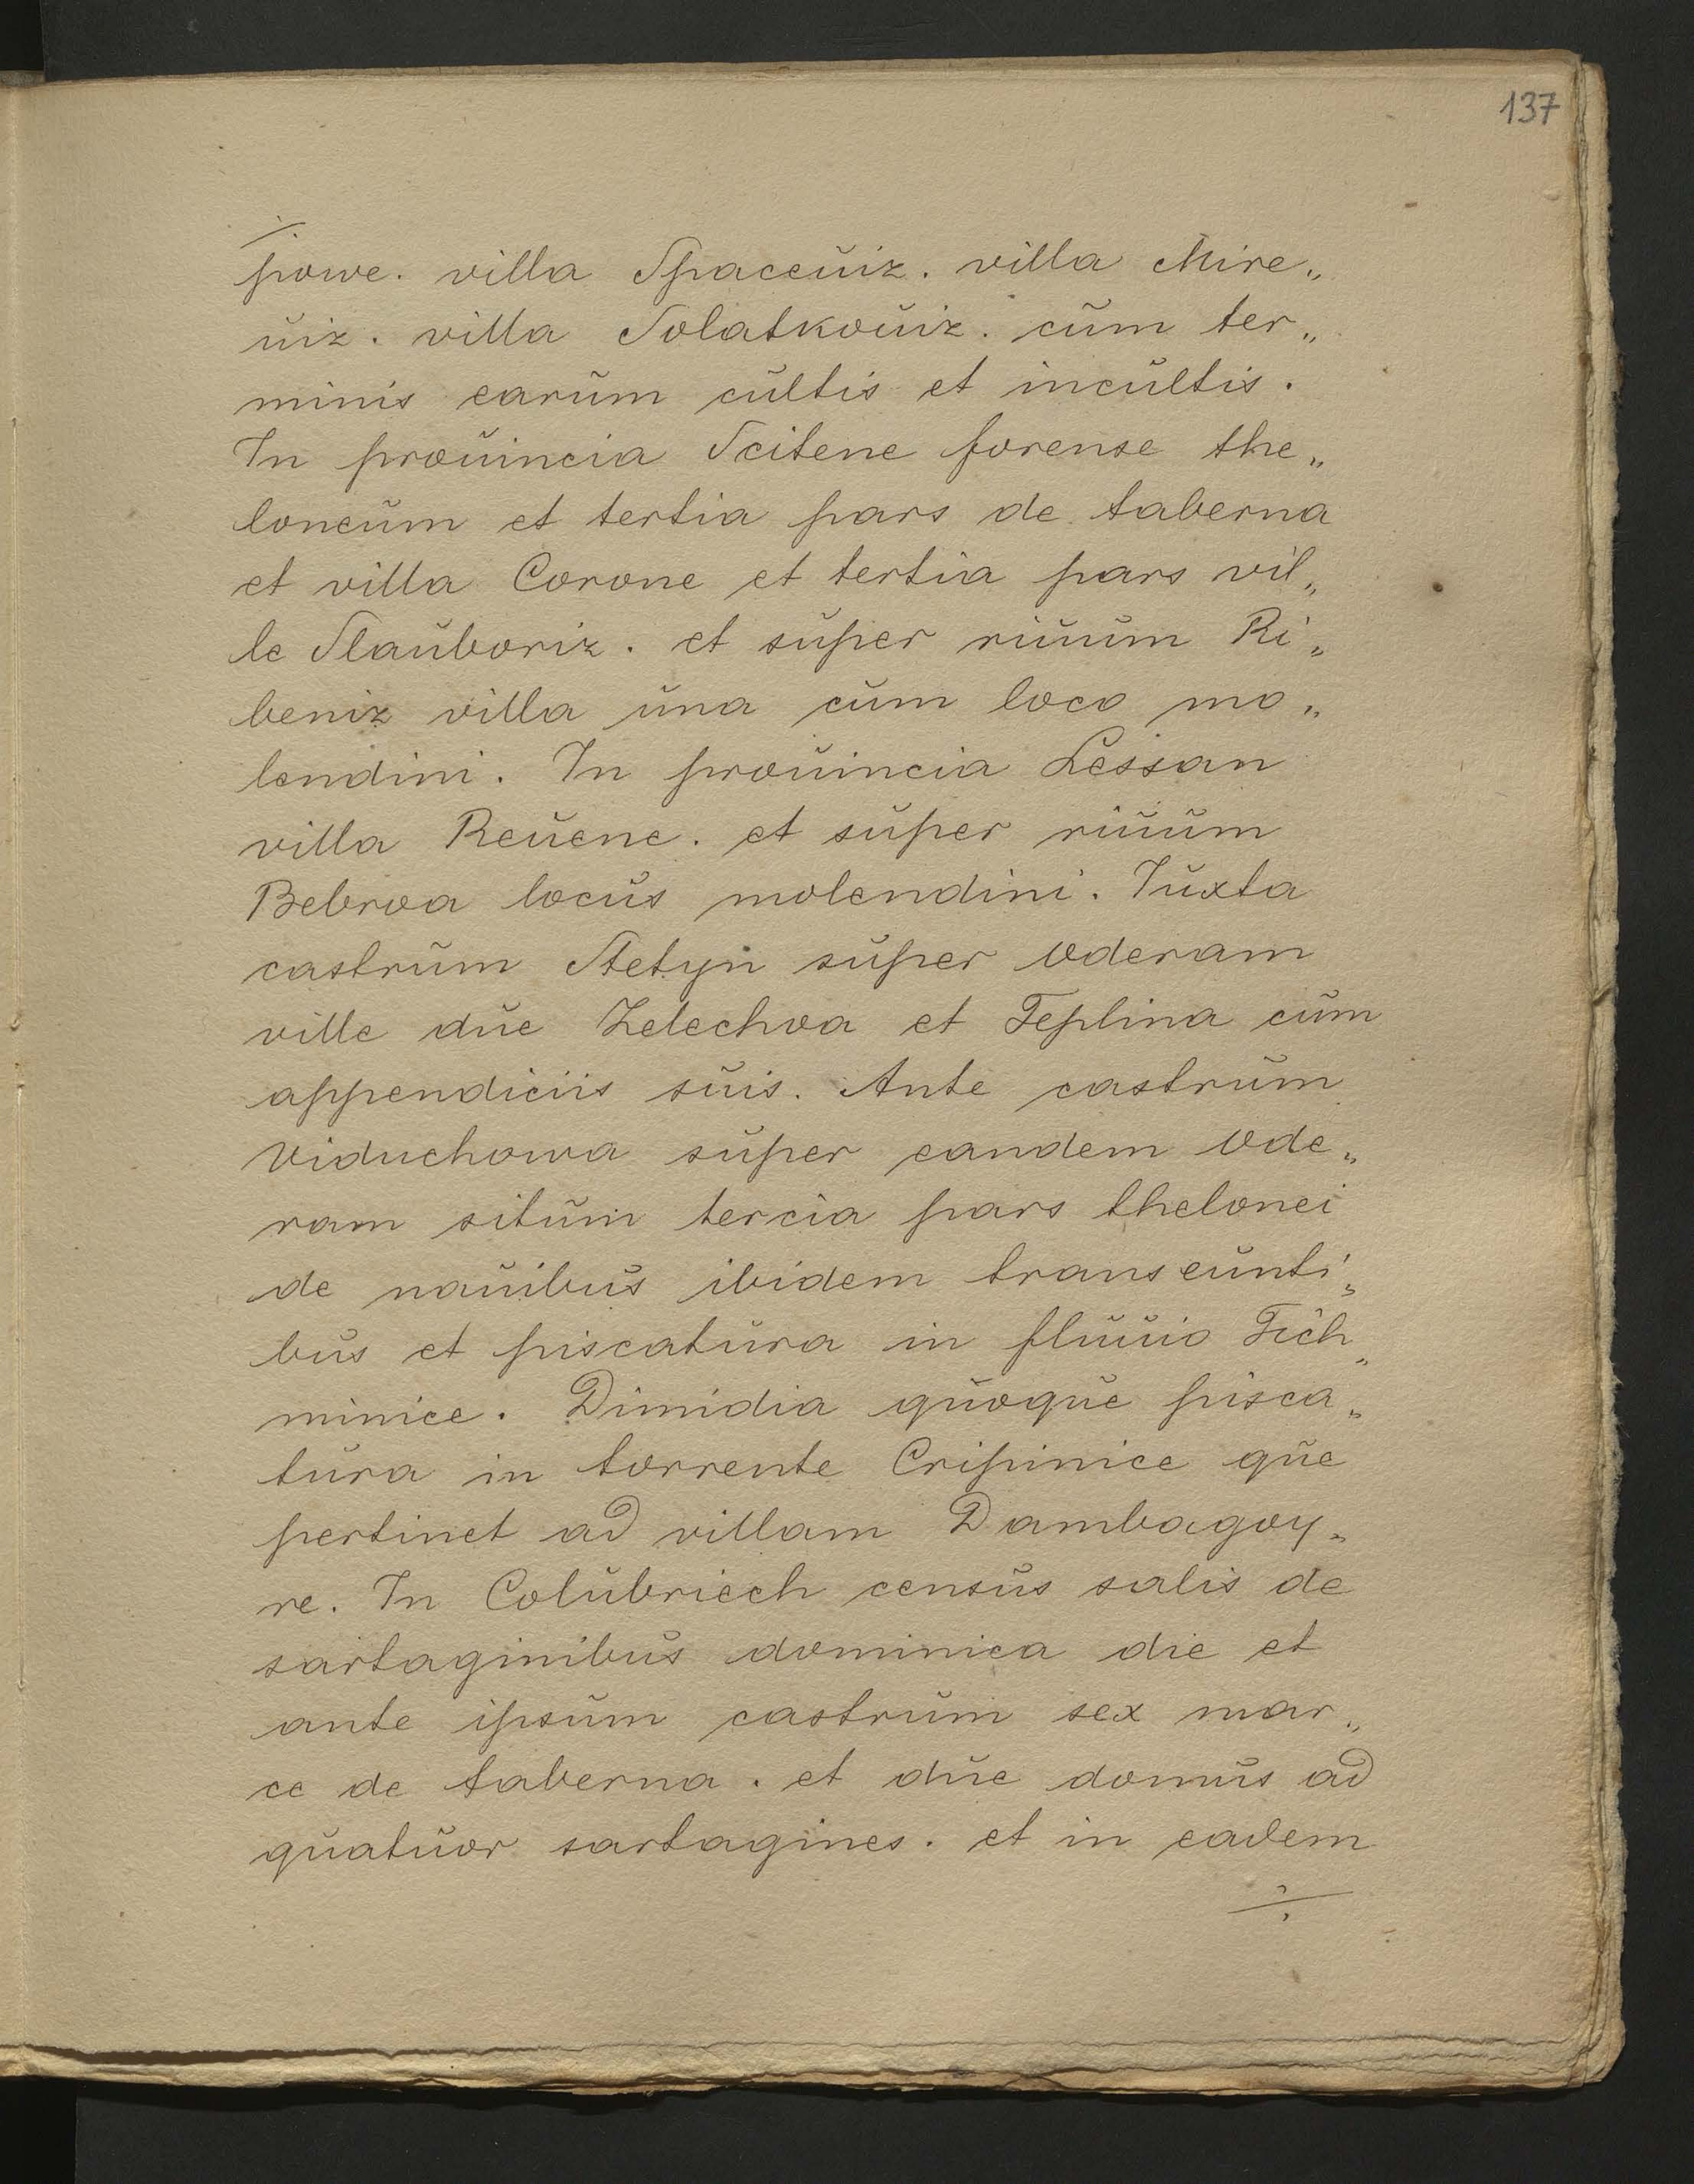 137
powe. villa Spaceuiz. villa Mire„
uiz. villa Solatkouiz. cum ter„
minis earum cultis et incultis.
In prouincia Scitene forense the„
loneum et tertia pars de taberna
et villa Corone et tertia pars vil„
le Slauboriz. et super riuum Ri„
beniz villa una cum loco mo„
lendini. In prouincia Lessan
villa Reuene. et super riuum
Bebroa locus molendini. Iuxta
castrum Stetyn super Oderam
ville due Zelechoa et Teplina cum
appendiciis suis. Ante castrum
Viduchowa super eandem Ode„
ram situm tercia pars thelonei
de nauibus ibidem transeunti„
bus et piscatura in fluuio Tich„
minice. Dimidia quoque pisca„
tura in torrente Cripinice que
pertinet ad villam Dambagoy„
re. In Colubriech census salis de
sartaginibus dominica die et
ante ipsum castrum sex mar„
ce de taberna. et due domus ad
quatuor sartagines. et in eadem